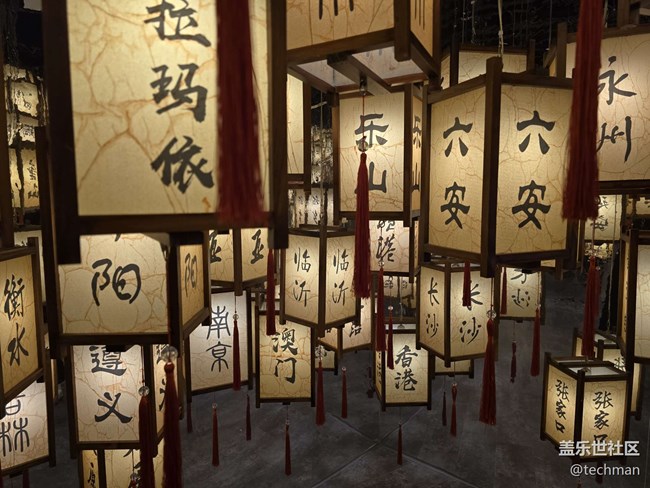 拉玛依
乐山
六安
六安
永州
阳
临沂
临沂
衡水
南京
澳门
长沙
长沙
香港
遵义
张家口
张家口
林
盖乐世社区
@techman